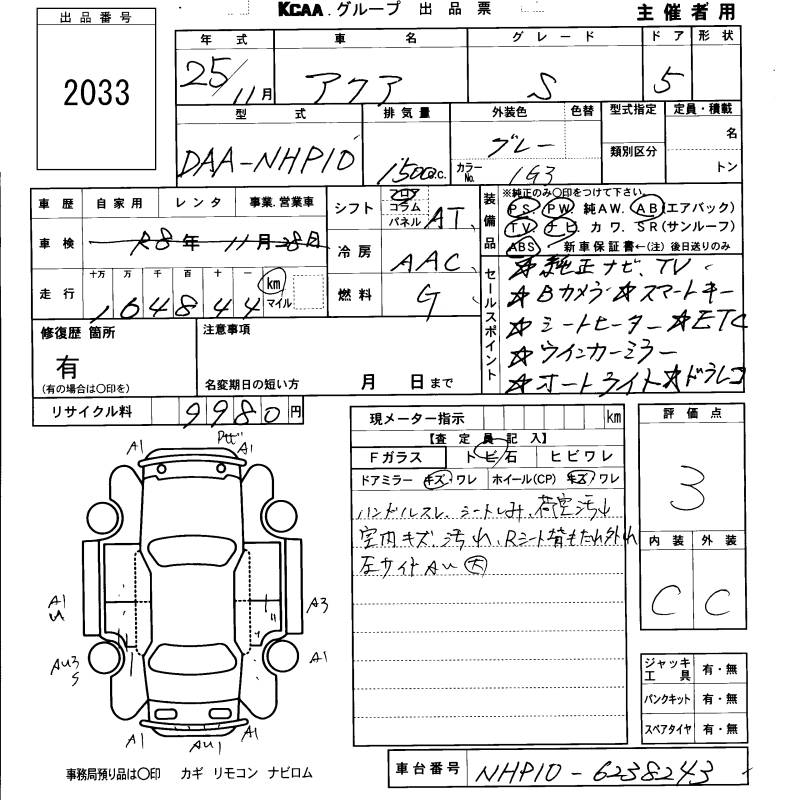 KCAA グループ 出品票
主催者用
出品番号
2033
年式 車名 グレード ドア 形状
25/11月 アクア S 5
型式 排気量 外装色 色替 型式指定 定員・積載
DAA-NHP10 1500c.c. グレー 名
カラーNo. 1G3 類別区分 トン
車歴 自家用 レンタ 事業.営業車
車検 R8年 11月28日
走行 十万 万 千 百 十 一 km マイル
164844
シフト フロア コラム パネル AT
冷房 AAC
燃料 G
装備品 ※純正のみ〇印をつけて下さい。
PS. PW. 純AW. AB(エアバック)
TV. ナビ. カワ. SR(サンルーフ)
ABS 新車保証書←(注) 後日送りのみ
セールスポイント
☆純正ナビ、TV
☆Bカメラ☆スマートキー
☆シートヒーター☆ETC
☆ウインカーミラー
☆オートライト☆ドラレコ
修復歴 箇所
有
(有の場合は〇印を)
注意事項
名変期日の短い方 月 日まで
リサイクル料 9980円
現メーター指示 km
【査定員記入】
Fガラス トビ石 ヒビワレ
ドアミラー キズ ワレ ホイール(CP) キズ ワレ
ハンドルスレ、シートしみ、荷室汚れ
室内キズ、汚れ、Rシート背もたれ外れ
左サイドAU 大
評価点
3
内装 外装
C C
A1 A1
A1 U A3
AU3 S A1
A1 AU1 A1
ジャッキ工具 有・無
パンクキット 有・無
スペアタイヤ 有・無
事務局預り品は〇印 カギ リモコン ナビロム
車台番号 NHP10-6238243